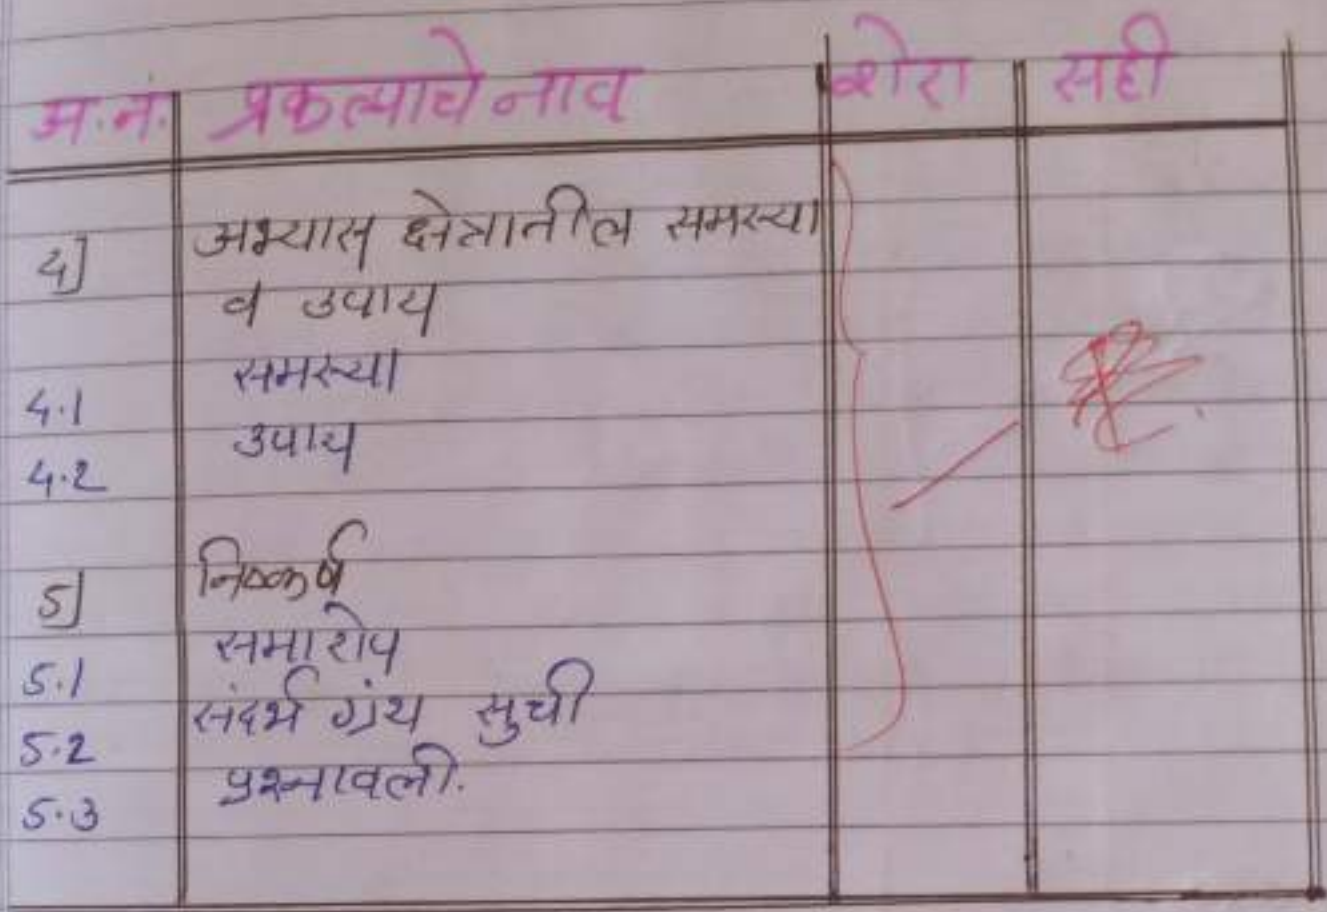 अ.नं. प्रकल्पाचे नाव शेरा सही
4] अभ्यास क्षेत्रातील समस्या
व उपाय
4.1 समस्या
4.2 उपाय
5] निष्कर्ष
5.1 समारोप
5.2 संदर्भ ग्रंथ सुची
5.3 प्रश्नावली.